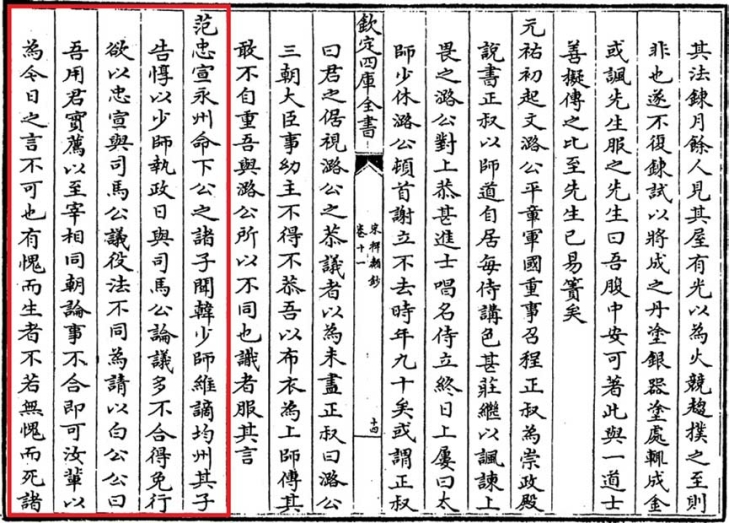 其法鍊月餘人見其屋有光以為火競趨撲之至則
非也遂不復鍊試以將成之丹塗銀器塗處輒成金
或諷先生服之先生曰吾腹中安可著此與一道士
善擬傳之比至先生已易簀矣
元祐初起文潞公平章軍國重事召程正叔為崇政殿
說書正叔以師道自居每侍講色甚莊繼以諷諫上
畏之潞公對上恭甚進士唱名侍立終日上屢曰太
師少休潞公頓首謝立不去時年九十矣或謂正叔
欽定四庫全書
宋稗類鈔
卷十一
十四
曰君之倨視潞公之恭議者以為未盡正叔曰潞公
三朝大臣事幼主不得不恭吾以布衣為上師傅其
敢不自重吾與潞公所以不同也識者服其言
范忠宣永州命下公之諸子聞韓少師維謫均州其子
告惇以少師執政日與司馬公論議多不合得免行
欲以忠宣與司馬公議役法不同為請以白公公曰
吾用君實薦以至宰相同朝論事不合即可汝輩以
為今日之言不可也有愧而生者不若無愧而死諸